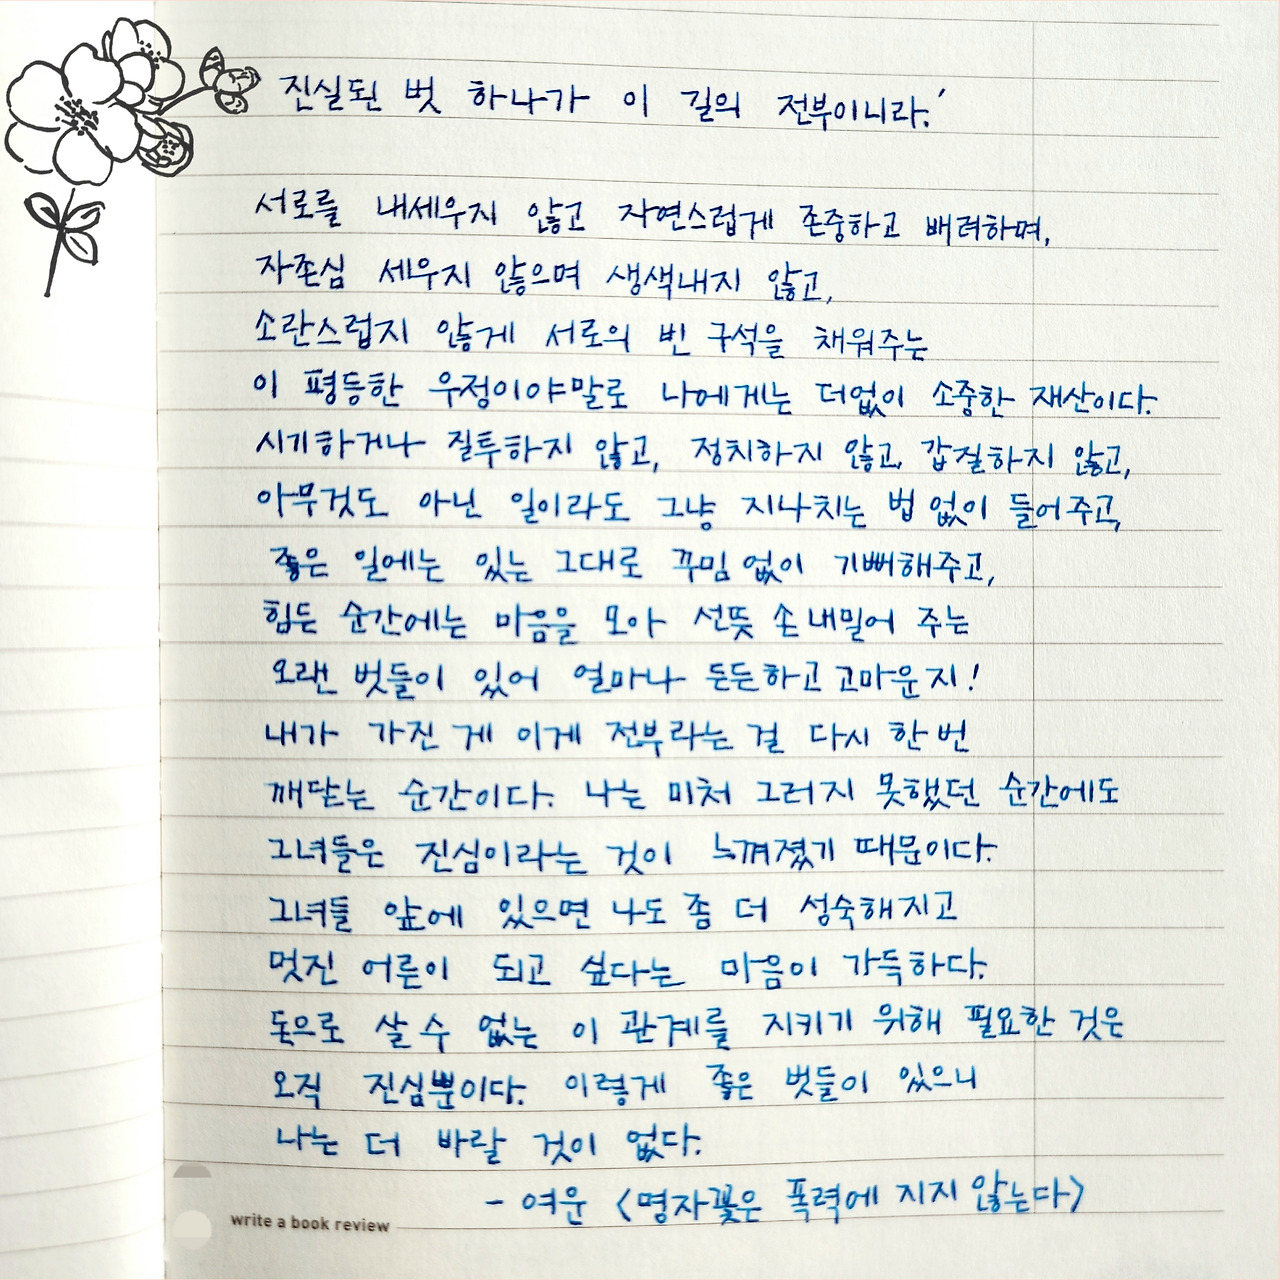 진실된 벗 하나가 이 길의 전부이니라.'
서로를 내세우지 않고 자연스럽게 존중하고 배려하며,
자존심 세우지 않으며 생색내지 않고,
소란스럽지 않게 서로의 빈 구석을 채워주는
이 평등한 우정이야말로 나에게는 더없이 소중한 재산이다.
시기하거나 질투하지 않고, 정치하지 않고, 갑질하지 않고,
아무것도 아닌 일이라도 그냥 지나치는 법 없이 들어주고,
좋은 일에는 있는 그대로 꾸밈 없이 기뻐해주고,
힘든 순간에는 마음을 모아 선뜻 손 내밀어 주는
오랜 벗들이 있어 얼마나 든든하고 고마운지!
내가 가진 게 이게 전부라는 걸 다시 한 번
깨닫는 순간이다. 나는 미처 그러지 못했던 순간에도
그녀들은 진심이라는 것이 느껴졌기 때문이다.
그녀들 앞에 있으면 나도 좀 더 성숙해지고
멋진 어른이 되고 싶다는 마음이 가득하다.
돈으로 살 수 없는 이 관계를 지키기 위해 필요한 것은
오직 진심뿐이다. 이렇게 좋은 벗들이 있으니
나는 더 바랄 것이 없다.
- 여운 <명자꽃은 폭력에 지지 않는다>
write a book review